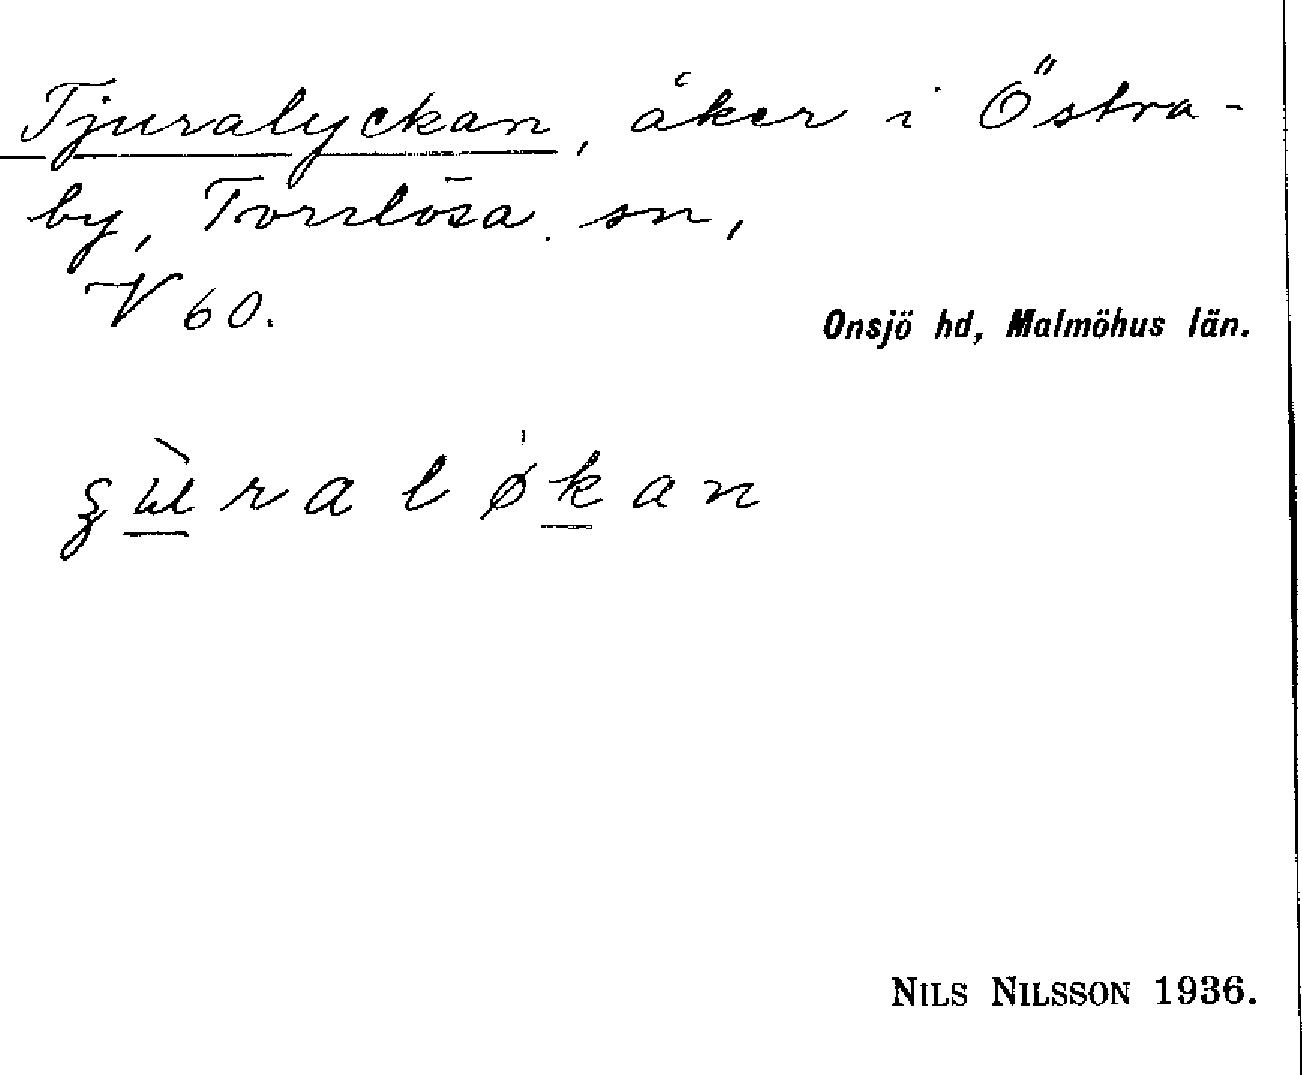 Tjuralyckan, åker i Östra-
by, Torrlösa sn,
V 60.
Onsjö hd, Malmöhus län.
ʂùralø̍kan
NILS NILSSON 1936.